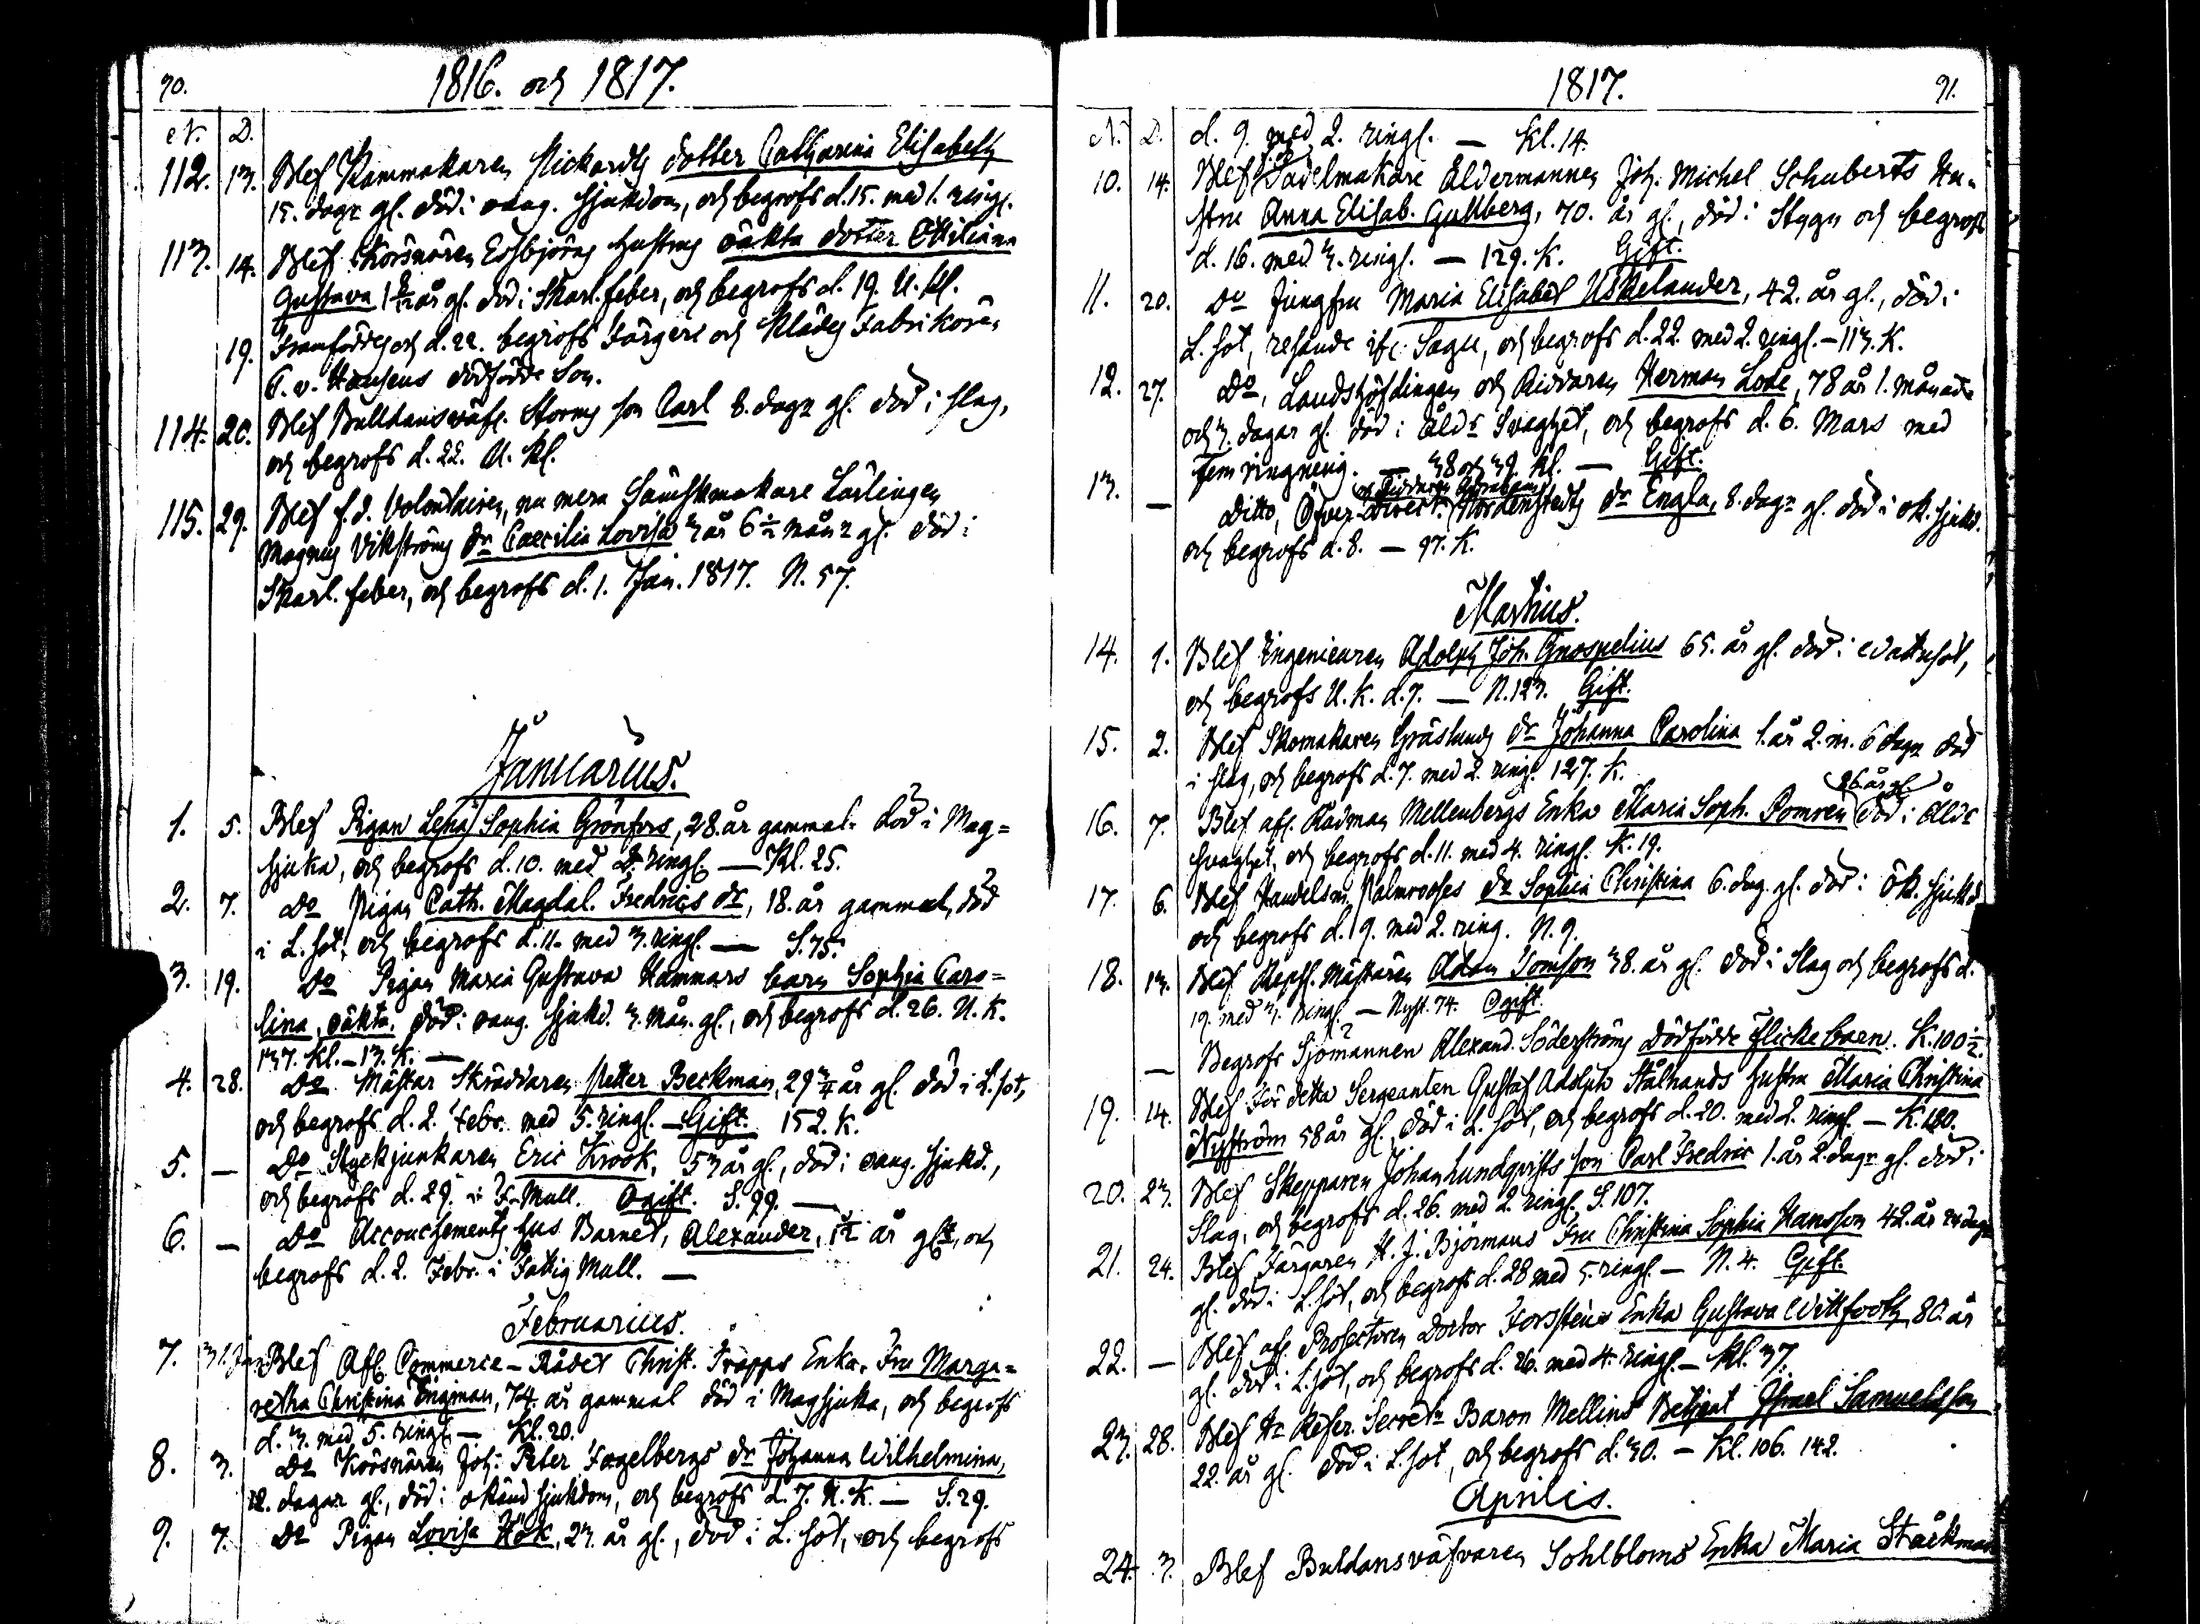 90.
1816. och 1817.
N. D.
112. 13. Blef Kammakaren Rickardts dotter Catharina Elisabeth
15. dagr gl. död i oäng. sjukdom, och begrofs d. 15. med 1. ringn.
113. 14. Blef Körsnären hustrus oäkta dotter
Gustava 1 år gl. död i Skarl. feber, och begrofs d. 19. U. Kl.
19. Framföddes och d. 22. begrofs Färgere och Klädes Fabrikören
P. v. Hausens dödfödde Son.
114. 20. Blef Bulldansväfv. Storms son Carl 8. dagr gl. död i slag,
och begrofs d. 22. U. Kl.
115. 29. Blef f. d. Volontairen, nu mera Sämskmakare Lärlingen
Magnus Vikströms dr Caecilia Lovisa 3 år 6 ½ mån gl. död i
Skarl. feber, och begrofs d. 1. Jan. 1817. N. 57.
Januarius.
1. 5. Blef Pigan Lena Sophia Grönfors, 28. år gammal, död i Mag-
sjuka, och begrofs d. 10. med 2. ringn. — Kl. 25.
2. 7. Do Pigan Cath. Magdal. Fredrics dr, 18. år gammal, död
i L. sot, och begrofs d. 11. med 3. ringn. — S. 75.
3. 19. Do Pigan Maria Gustava Hammars barn Sophia Caro-
lina, oäkta. död i oäng. sjukd. 3. mån. gl., och begrofs d. 26. U. K.
137. Kl. — 13. K. —
4. 28. Do Mästar Skräddaren Petter Beckman, 29 ¾ år gl. död i L. sot,
och begrofs d. 2. Febr. med 5. ringn. — Gift. 152. K.
5. — Do Styckjunkaren Eric Krook, 53 år gl., död i oäng. sjukd.,
och begrofs d. 29. i F. Mull. Ogift. S. 99. —
6. — Do Accouchements hus Barnet, Alexander, år glt, och
begrofs d. 2. Febr. i Fattig Mull. —
Februarius.
7. 31. Jan. Blef Afl. Commerce-Rådet Christ. Trapps Enka, Fru Marga-
retha Christina Engman, 74. år gammal död i Magsjuka, och begrofs
d. 3. med 5. ringn. — Kl. 20.
8. 3. Do Körsnären Joh: Peter Fogelbergs dr Johanna Wilhelmina,
12. dagar gl., död i okänd sjukdom, och begrofs d. 7. U. K. — S. 29.
9. 7. Do Pigan Lovisa Hök, 23. år gl., död i L. sot, och begrofs
1817.
91.
N. D. d. 9. med 2. ringn. — Kl. 14.
10. 14. Blef Sadelmakare Åldermannen Joh. Michel Schuberts Hu-
stru Anna Elisab. Gullberg, 70. år gl., död i Stygn och begrofs
d. 16. med 3. ringn. — 129. K. Gift.
11. 20. Do Jungfru Maria Elisabet Uskelander, 42. år gl., död i
L. sot, resande ifr. Sagu, och begrofs d. 22. med 2. ringn. — 113. K.
12. 27. Do, Landshöfdingen och Riddaren Herman Lode, 78 år 1. månad
och 3. dagar gl. död i Åldr Svaghet, och begrofs d. 6. Mars med
fem ringning. — 38 och 39. Kl. — Gift.
13. — Ditto, Öfver-Direct. och Riddaren Abraham Nordenstedts dr Engla, 8. dagr gl. död i ok. sjukd.
och begrofs d. 8. — 97. K.
Martius.
14. 1. Blef Ingenieuren Adolph Joh. Gnospelius 65. år gl. död i Wattusot,
och begrofs U. K. d. 7. — N. 123. Gift.
15. 2. Blef Skomakaren Gräslunds dr Johanna Carolina 1. år 2. m. 6 dagr död
i slag, och begrofs d. 7. med 2. ringn. 127. K.
16. 7. Blef afl. Rådman Mellenbergs Enka Maria Soph. Pomren 26. år gl. död i Åldr
svaghet, och begrofs d. 11. med 4. ringn. K. 19.
17. 6. Blef Handelsm. Palmrooses dr Sophia Christina 6. dag. gl. död i ok. sjukd.
och begrofs d. 9. med 2. ring. N. 9.
18. 13. Blef Repsl. Mästaren Adam Tomson 38. år gl. död i Slag och begrofs d.
19. med 3. ringn. — Nyst. 74. Ogift.
— Begrofs Sjömannen Alexand. Söderströms dödfödde flicke barn. K. 100 ½.
19. 14. Blef För detta Sergeanten Gustaf Adolph Stålhands hustru Maria Christina
Nyström 58 år gl. död i L. sot, och begrofs d. 20. med 2. ringn. — K. 180.
20. 23. Blef Skepparen Johan Lundqvists son Carl Fredric 1. år 2. dagr gl. död i
Slag, och begrofs d. 26. med 2. ringn. S. 107.
21. 24. Blef Färgaren H. J. Björmans Fru Christina Sophia Hansson 42. år dagr
gl. död i L. sot, och begrofs d. 28 med 5. ringn. — N. 4. Gift.
22. — Blef afl. Prosectoren Doctor Forsstens Enka Gustava Wittfooth 80. år
gl. död i L. sot, och begrofs d. 26. med 4. ringn. — Kl. 37.
23. 28. Blef Hr Refer. Secretr Baron Mellins Betjent Israel Samuelsson
22. år gl. död i L. sot, och begrofs d. 30. — Kl. 106. 142.
Aprilis.
24. 3. Blef Buldansväfvaren Sohlbloms Enka Maria Stäckman